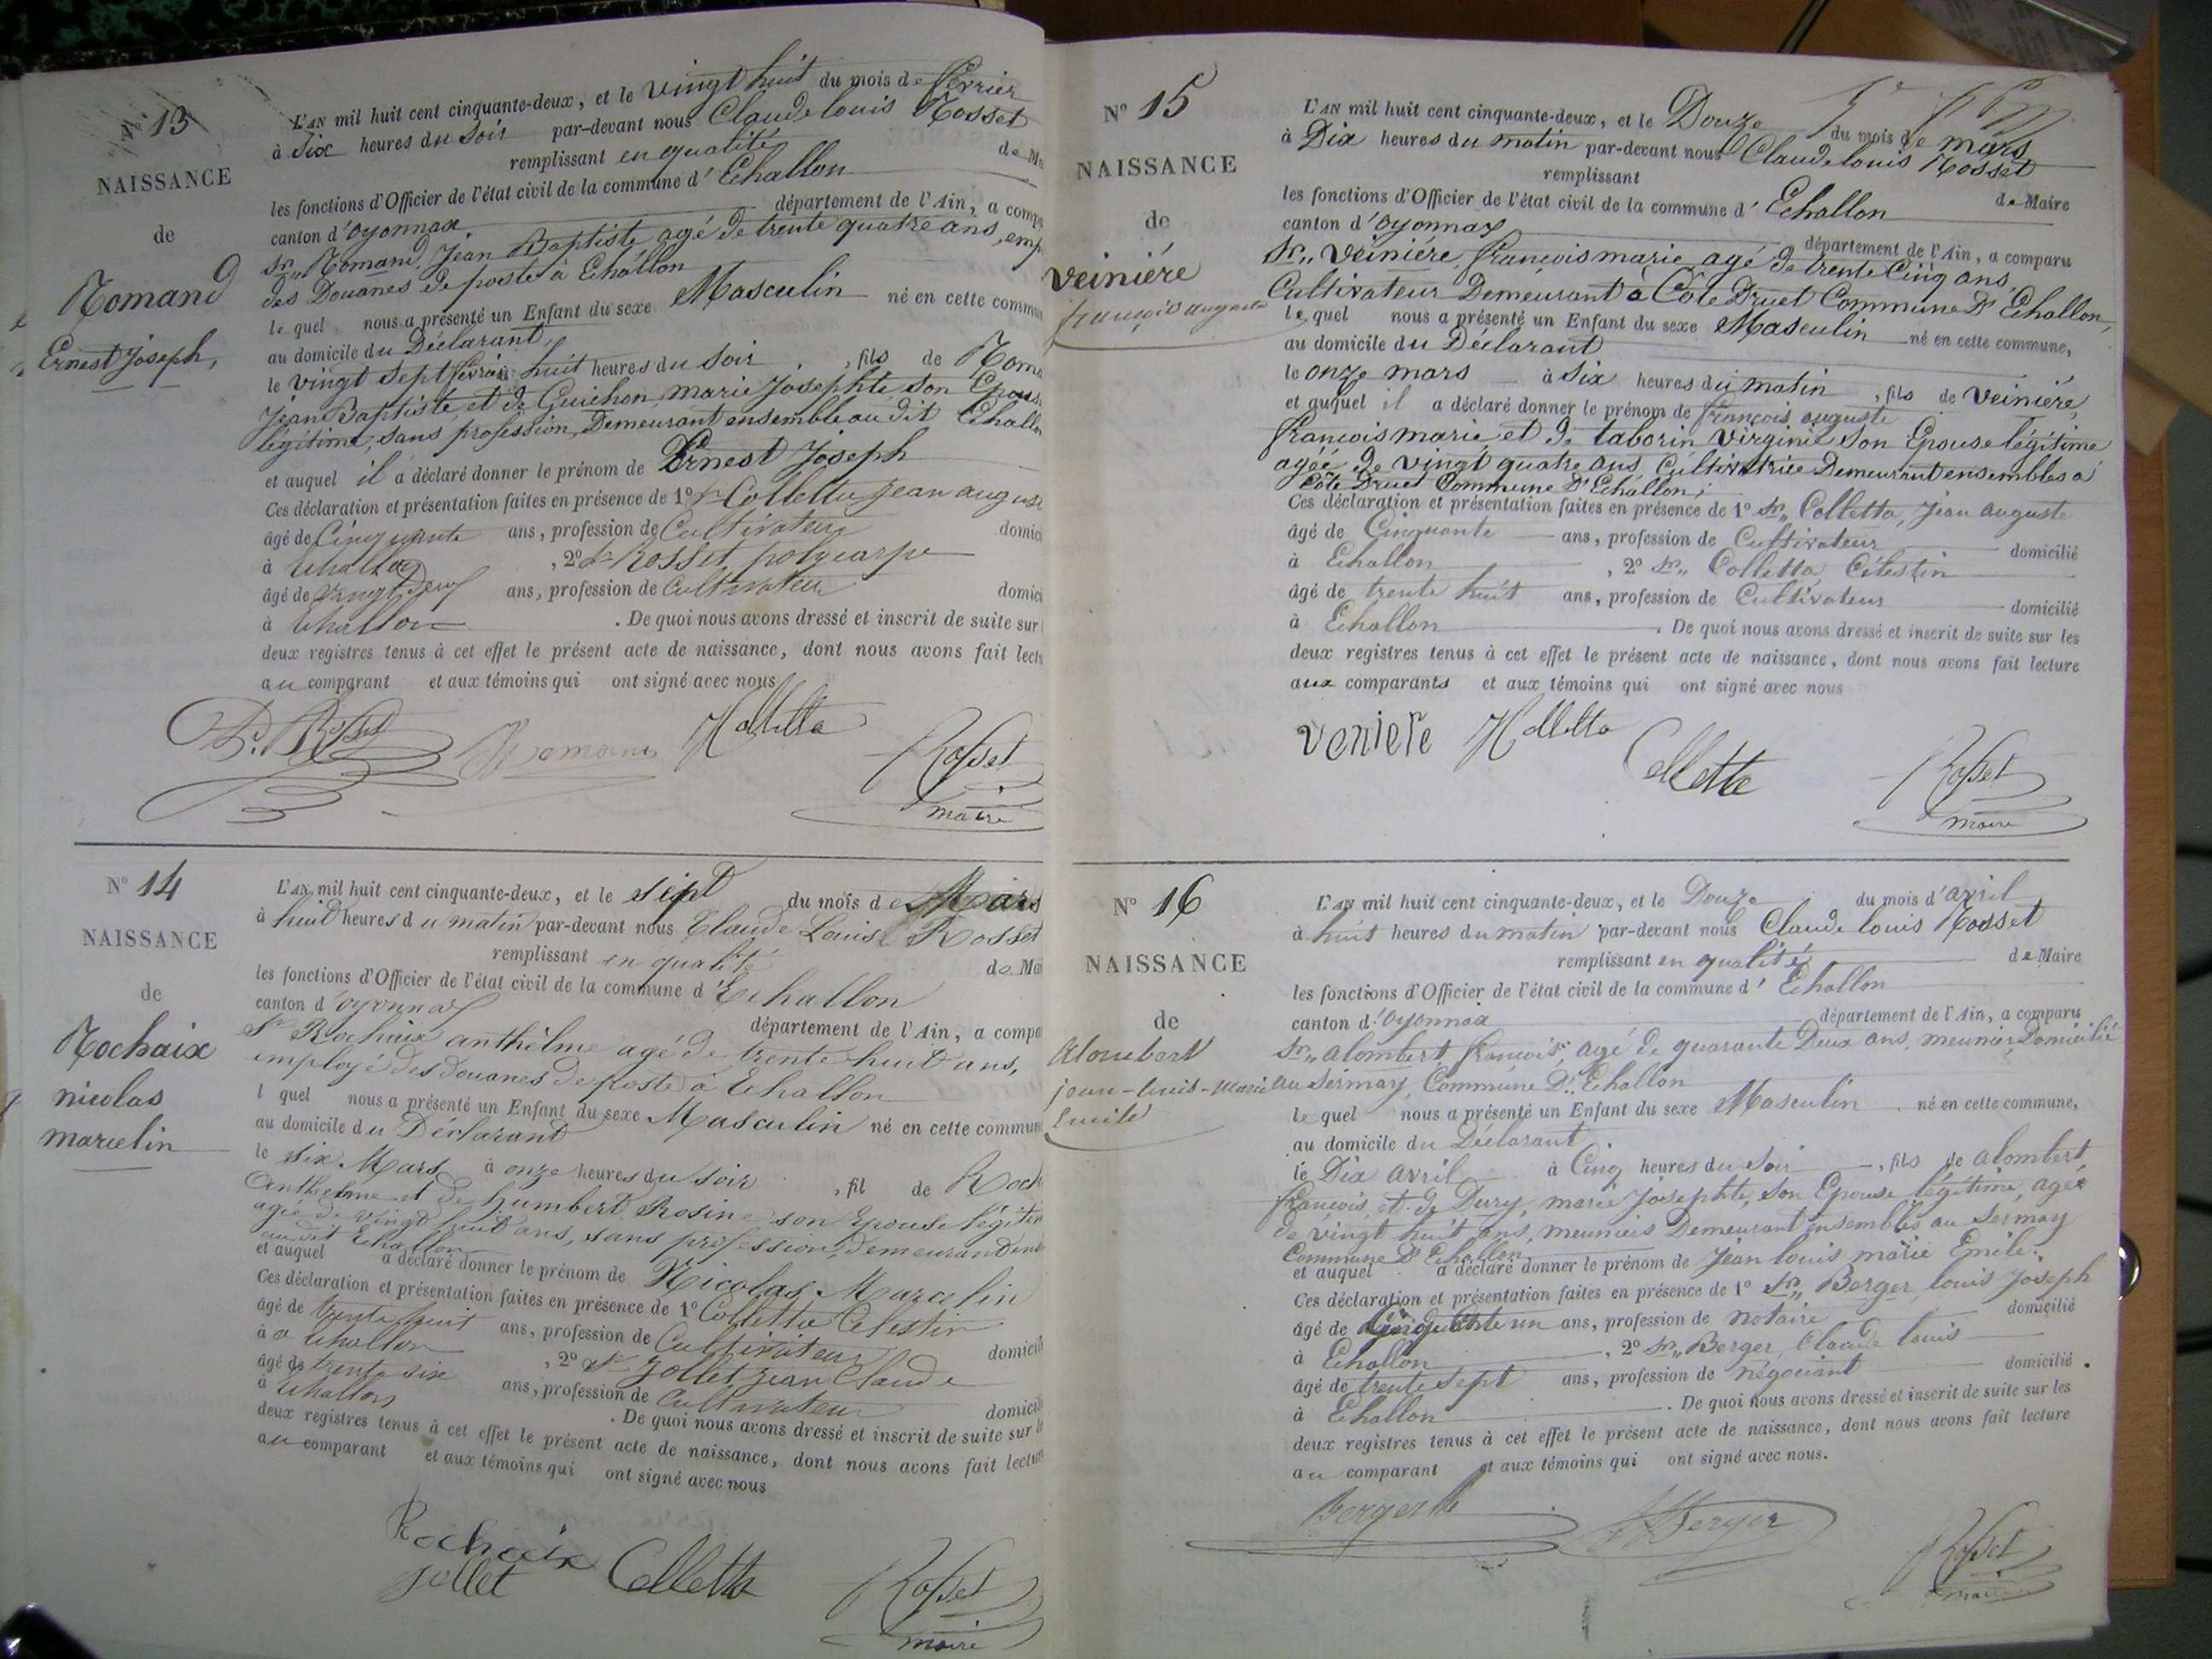 N° 13
NAISSANCE
de
Romand
Ernest Joseph,
L'AN mil huit cent cinquante-deux, et le vingt huit du mois de février
à Six heures du Soir par-devant nous Claude louis Rosset
remplissant en qualité de Ma
les fonctions d'Officier de l'état civil de la commune d'Echallon
canton d'oyonnax. département de l'Ain, a comp
Sr,, Romand, Jean Baptiste, agé de trente quatre ans, emp
des Douanes de poste à Echallon
le quel nous a présenté un Enfant du sexe Masculin né en cette commun
au domicile du Déclarant,
le vingt Sept février à huit heures du Soir , fils de Roma
Jean Baptiste, et de Guichon, marie Josephte, son Epouse
légitime, sans profession, Demeurant ensemble au dit Echallon
et auquel il a déclaré donner le prénom de Ernest Joseph
Ces déclaration et présentation faites en présence de 1° Sr Colletta jean auguste
âgé de Cinquante ans, profession de Cultivateur domici
à Echallon , 2° Sr Rosset polycarpe
âgé de vingt Deux ans, profession de Cultivateur domici
à Echallon . De quoi nous avons dressé et inscrit de suite sur
deux registres tenus à cet effet le présent acte de naissance, dont nous avons fait lectu
au comparant et aux témoins qui ont signé avec nous
P. Rosset Romand Colletta Rosset
maire
N° 14
NAISSANCE
de
Rochaix
nicolas
marcelin
L'AN mil huit cent cinquante-deux, et le sept du mois de Mars
à huit heures du matin par-devant nous Claude Louis Rosset
remplissant en qualité de Mai
les fonctions d'Officier de l'état civil de la commune d'Echallon
canton d'oyonnax département de l'Ain, a compa
Sr Rochaix anthelme agé de trente huit ans,
employé des douanes de poste à Echallon
l quel nous a présenté un Enfant du sexe Masculin né en cette commun
au domicile du Déclarant
le six Mars à onze heures du soir , fil de Roch
Anthelme et de humbert Rosine son Epouse légitim
agée de vingt huit ans, sans profession, demeurant en
au dit Echallon
et auquel a déclaré donner le prénom de Nicolas Marcelin
Ces déclaration et présentation faites en présence de 1° Colletta Celestin
âgé de trente huit ans, profession de Cultivateur domicili
à a Echallon , 2° Sr Jollet jean Claude
âgé de trente six ans, profession de Cultivateur domicil
à Echallon . De quoi nous avons dressé et inscrit de suite sur l
deux registres tenus à cet effet le présent acte de naissance, dont nous avons fait lecture
au comparant et aux témoins qui ont signé avec nous
Rochaix
Jollet Colletta Rosset
maire
N° 15
NAISSANCE
de
Veinière
françois auguste
L'AN mil huit cent cinquante-deux, et le Douze du mois de mars
à Dix heures du matin par-devant nous Claude louis Rosset
remplissant de Maire
les fonctions d'Officier de l'état civil de la commune d'Echallon
canton d'oyonnax département de l'Ain, a comparu
Sr,, Veinière, françois marie, agé de trente Cinq ans,
Cultivateur Demeurant à Côte Druet Commune D'Echallon,
le quel nous a présenté un Enfant du sexe Masculin né en cette commune,
au domicile du Déclarant
le onze mars à Six heures du matin , fils de Veinière,
et auquel il a déclaré donner le prénom de françois auguste
françois marie, et de taborin Virginie son Epouse légitime
agée de vingt quatre ans, Cultivatrice Demeurant ensembles à
Côte Druet Commune D'Echallon;
Ces déclaration et présentation faites en présence de 1° Sr,, Colletta, Jean auguste
âgé de Cinquante ans, profession de Cultivateur domicilié
à Echallon , 2° Sr,, Colletta, Célestin
âgé de trente huit ans, profession de Cultivateur domicilié
à Echallon . De quoi nous avons dressé et inscrit de suite sur les
deux registres tenus à cet effet le présent acte de naissance, dont nous avons fait lecture
aux comparants et aux témoins qui ont signé avec nous
veniere Colletta Colletta Rosset
maire
N° 16
NAISSANCE
de
Alombert
jean-louis-marie
Emile
L'AN mil huit cent cinquante-deux, et le Douze du mois d'avril
à huit heures du matin par-devant nous Claude louis Rosset
remplissant en qualité de Maire
les fonctions d'Officier de l'état civil de la commune d'Echallon
canton d'oyonnax département de l'Ain, a comparu
Sr,, alombert, françois, agé de quarante Deux ans, meunier, Domicilié
au Sermay, Commune D'Echallon
le quel nous a présenté un Enfant du sexe Masculin né en cette commune,
au domicile du Déclarant.
le Dix avril à Cinq heures du Soir , fils de alombert,
françois, et de Dury, marie Josephte, Son Epouse légitime, agée
de vingt huit ans, meuniers Demeurant ensembles au Sermay
Commune D'Echallon,
et auquel a déclaré donner le prénom de Jean louis marie Emile.
Ces déclaration et présentation faites en présence de 1° Sr,, Berger, louis Joseph
âgé de Cinquante un ans, profession de notaire domicilié
à Echallon , 2° Sr,, Berger, Claude louis
âgé de trente Sept ans, profession de négociant domicilié
à Echallon . De quoi nous avons dressé et inscrit de suite sur les
deux registres tenus à cet effet le présent acte de naissance, dont nous avons fait lecture
au comparant et aux témoins qui ont signé avec nous.
Berger Berger Rosset
maire